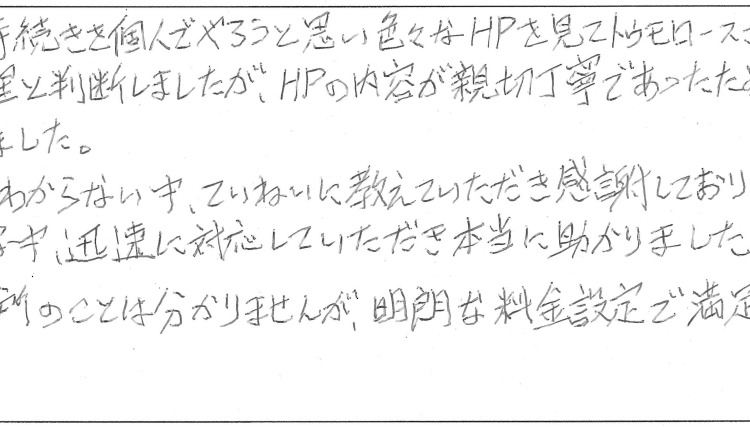 手続きを個人でやろうと思い色々なHPを見てトゥモローズさ
理と判断しましたが、HPの内容が親切丁寧であったため
ました。
わからない中、ていねいに教えていただき感謝しており
な中、迅速に対応していただき本当に助かりました
所のことは分かりませんが、明朗な料金設定で満足